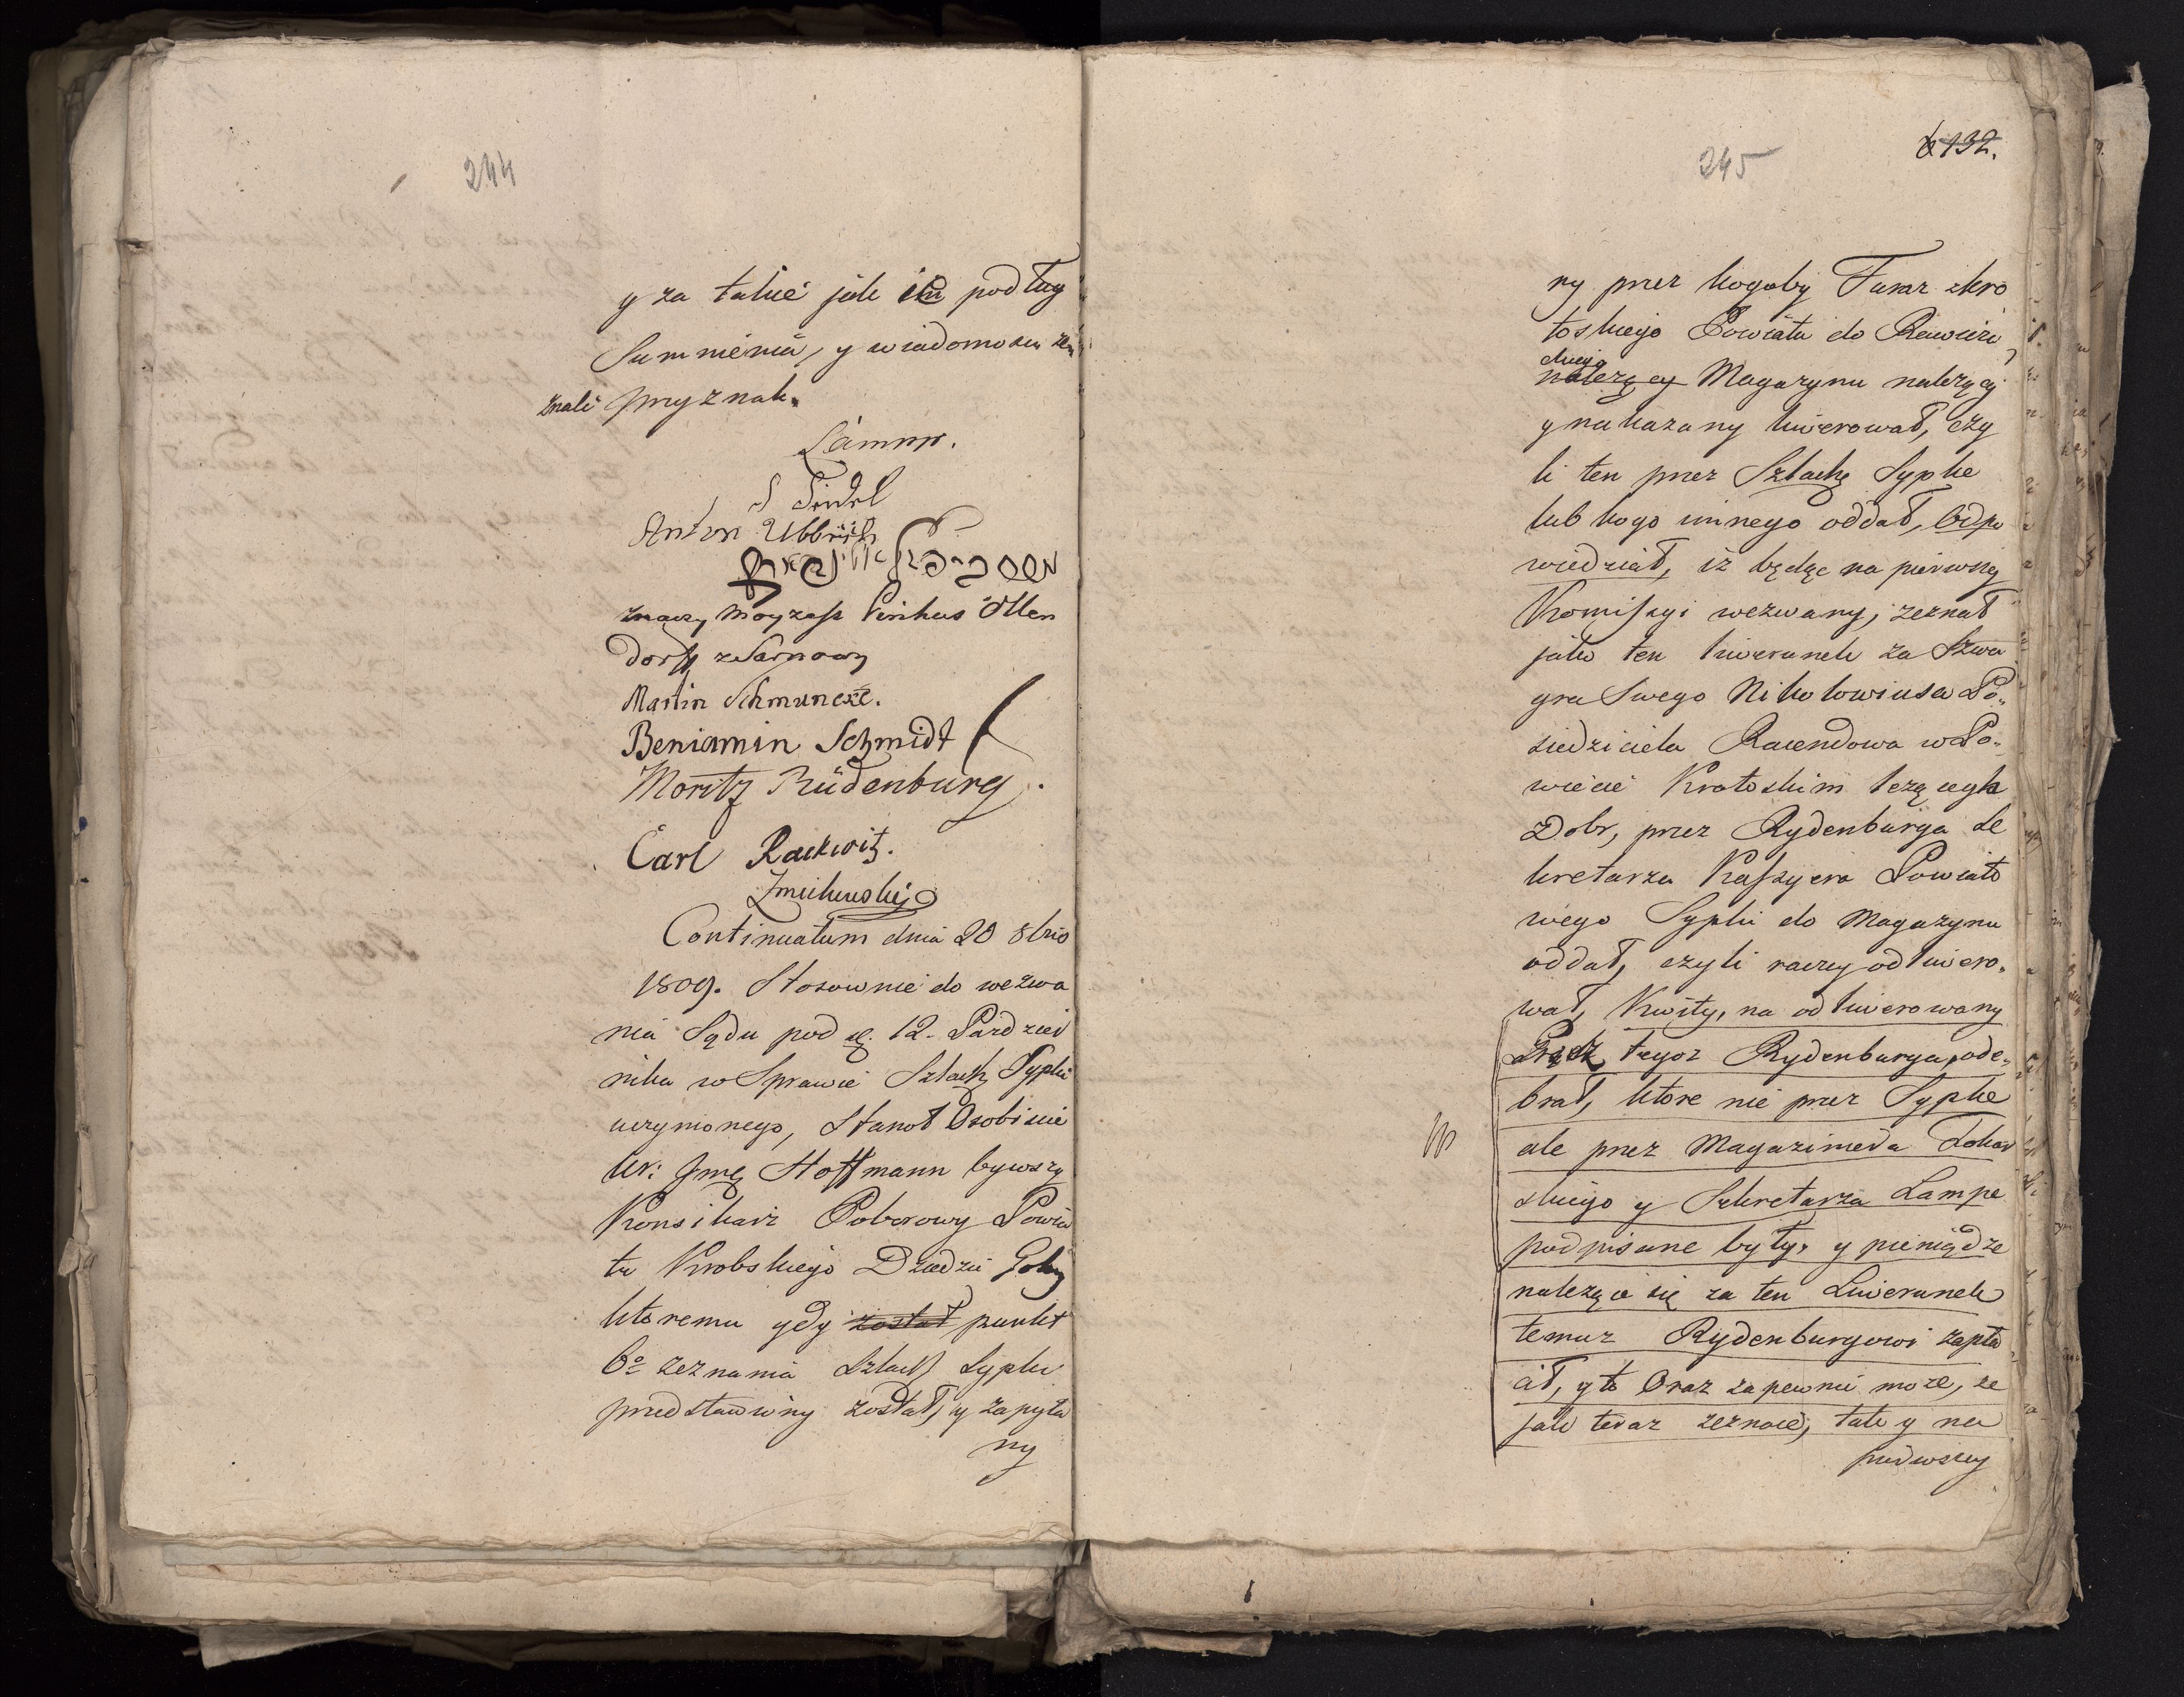 244
y za takie jak ich podług
Sumnienia, y wiadomosci ze
znali przyznali.
Lampe.
S Seidel
Anton Ulbrich
znaczy Moyzesz Pinkus Ollen
dorff z Sarnowy
Martin Schmuncke.
Beniamin Schmidt
Moritz Rüdenburg.
Carl Rackwitz.
Zmichewski
Continuatum dnia 20 8bris
1809. Stosownie do wezwa
nia Sądu pod d. 12. Pazdzier
nika w Sprawie Szlach Sypki
uczynionego, Stanoł Osobiscie
Ur: Jmę Hoffmann bywszy
Konsiliarz Poborowy Powia
tu Krobskiego Dziedzic Goli
ktoremu gdy został punkt
6º zeznania Szlach Sypki
przedstawiony został, y zapyta
ny
245
132.
ny przez kogoby Furaz z Kro
toskiego Powiatu do Rawicz
skiego
należący Magazynu należący
y nakazany liwerował, czy
li ten przez Szlachę Sypke
lub kogo innego oddał, Odpo
wiedział, iż będąc na pierwszey
Komissyi wezwany, zeznał
jako ten liwerunek za Szwa
gra Swego Nikolowiusa Po„
siedziciela Racendowa w Po„
wiecie Krotoskim leżących
Dobr, przez Rydenburga Se
kretarza Kassyera Powiato
wego Sypki do Magazynu
oddał, czyli raczey odliwero„
wał, Kwity, na odliwerowany
Przez tegoz Rydenburga, ode„
brał, ktore nie przez Sypke
ale przez Magaziniera Tokar
skiego y Sekretarza Lampe
podpisane były, y pieniądze
należące się za ten Liwerunek
temuz Rydenburgowi zapła
cił, y to Oraz zapewnic może, że
jak teraz zeznaie, tak y na
pierwszey